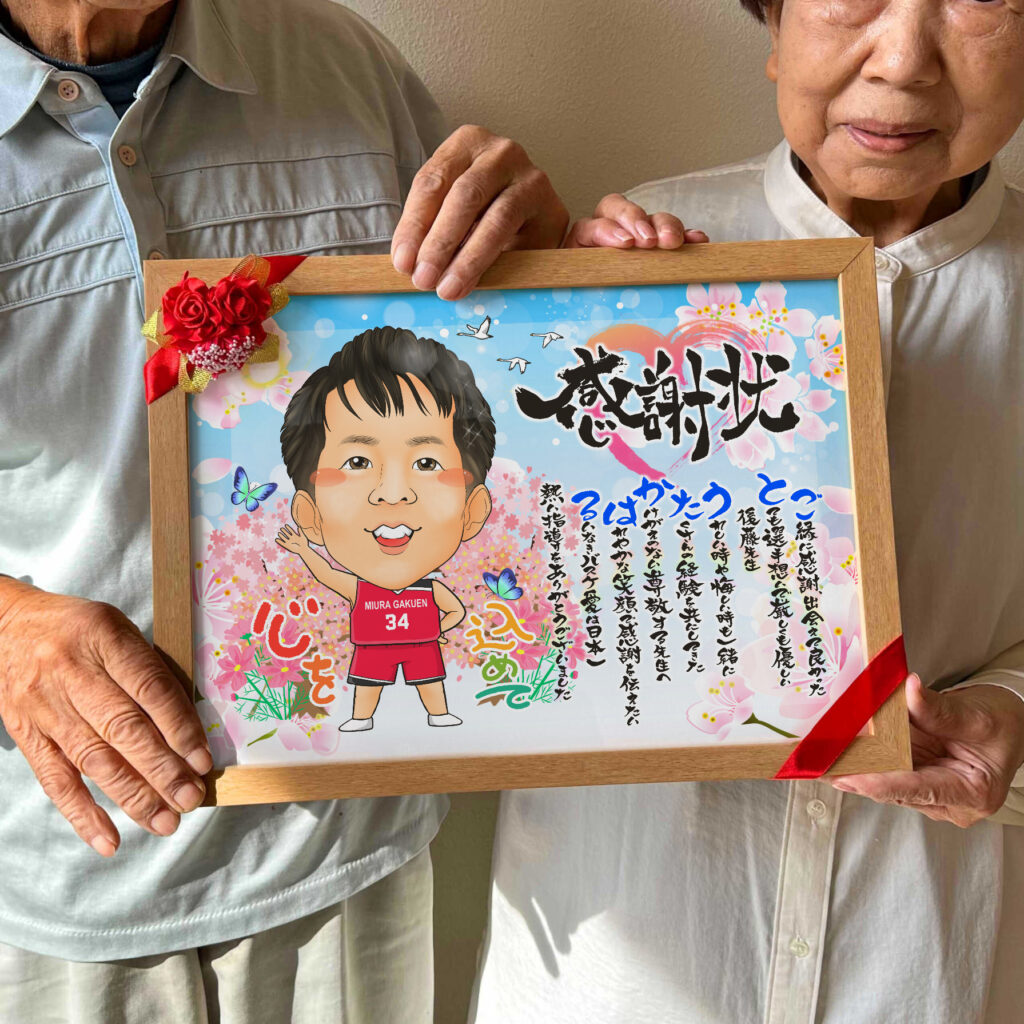 感謝状
ご縁に感謝、出会えて良かった
とても選手想いで厳しくも優しい
後藤先生
うれしい時も悔しい時も一緒に
たくさんの経験を共にしてきた
かけがえのない尊敬する先生の
はれやかな笑顔で感謝を伝えたい
るいなきバスケ愛は日本一
熱い指導をありがとうございました
心を
込めて
MIURA GAKUEN
34